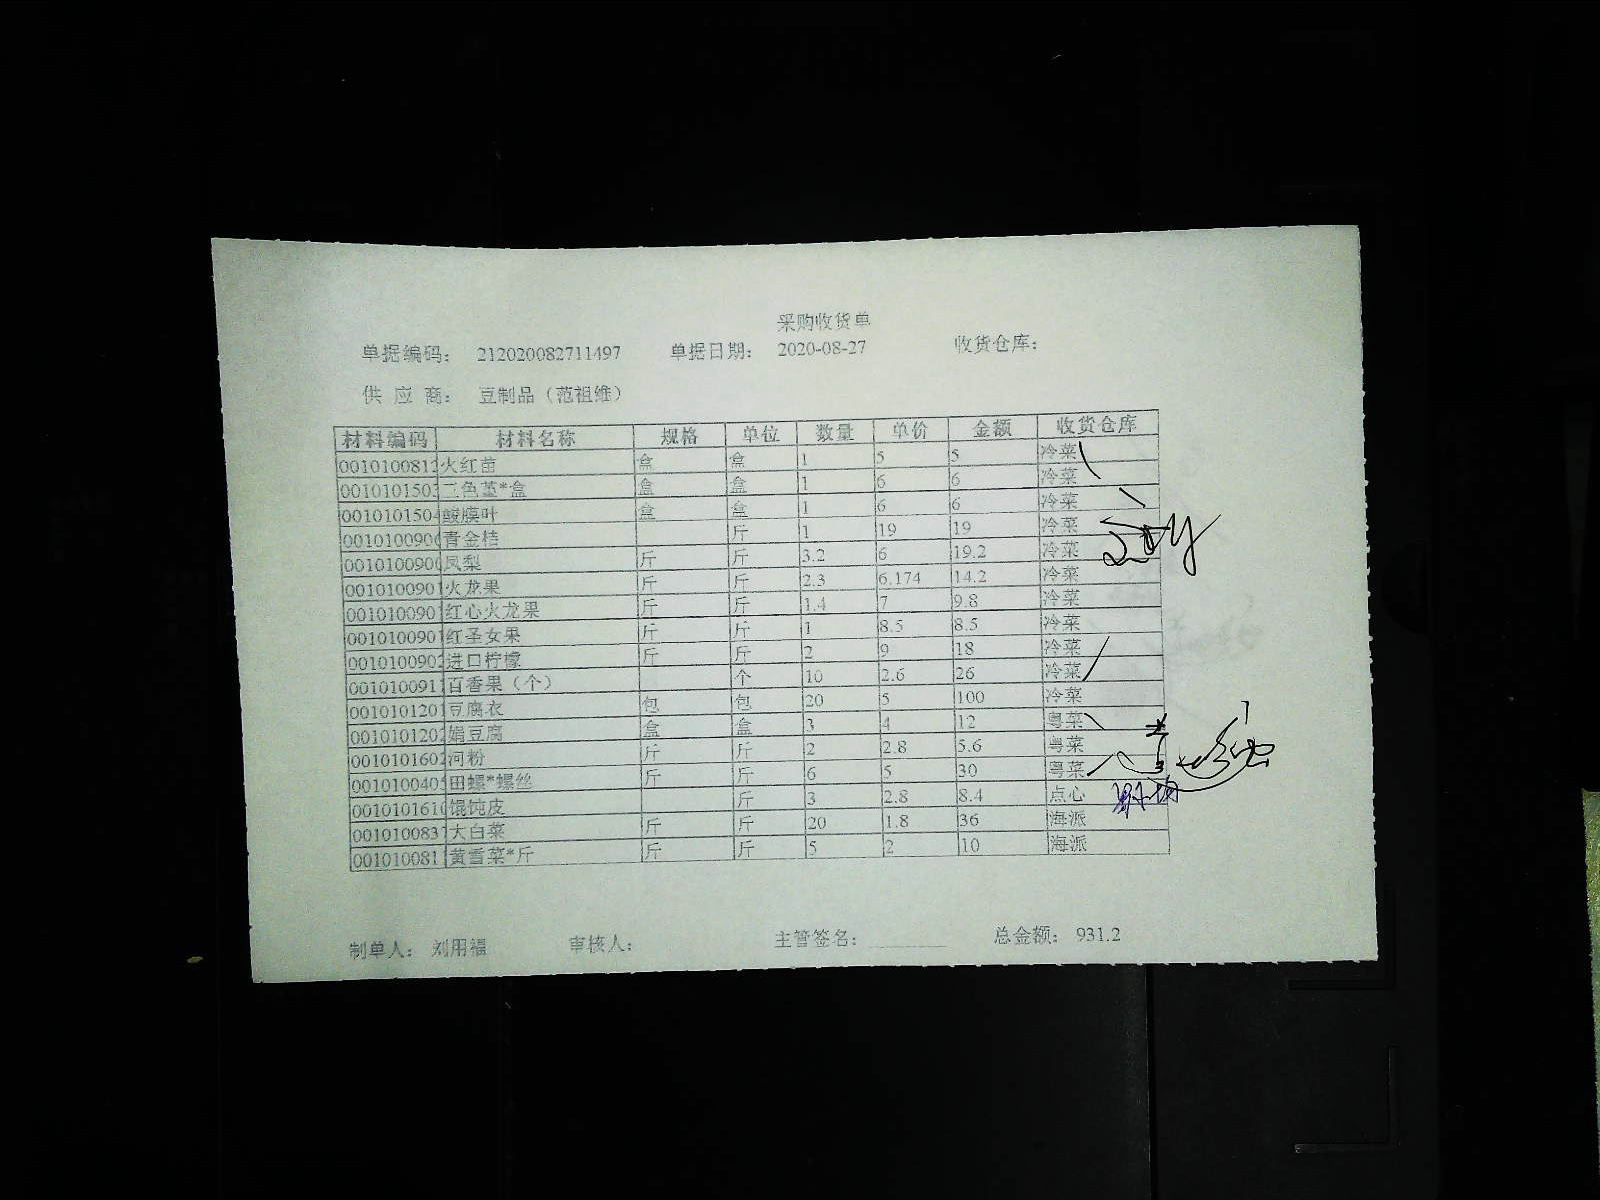 采购收货单
单据编码： 212020082711497 单据日期： 2020-08-27 收货仓库：
供 应 商： 豆制品（范祖维）
材料编码 材料名称 规格 单位 数量 单价 金额 收货仓库
0010100812 火红苗 盒 盒 1 5 5 冷菜
001010150 三色堇*盒 盒 盒 1 6 6 冷菜
0010101504 酸膜叶 盒 盒 1 6 6 冷菜
001010090 青金桔 斤 1 19 19 冷菜
001010090 凤梨 斤 斤 3.2 6 19.2 冷菜
001010090 火龙果 斤 斤 2.3 6.174 14.2 冷菜
001010090 红心火龙果 斤 斤 1.4 7 9.8 冷菜
001010090 红圣女果 斤 斤 1 8.5 8.5 冷菜
0010100902 进口柠檬 斤 斤 2 9 18 冷菜
001010091 百香果（个） 个 10 2.6 26 冷菜
001010120 豆腐衣 包 包 20 5 100 冷菜
0010101202 娟豆腐 盒 盒 3 4 12 粤菜
0010101602 河粉 斤 斤 2 2.8 5.6 粤菜
001010040 田螺*螺丝 斤 斤 6 5 30 粤菜
001010161 馄饨皮 斤 3 2.8 8.4 点心
001010083 大白菜 斤 斤 20 1.8 36 海派
001010081 黄雪菜*斤 斤 斤 5 2 10 海派
制单人： 刘用福 审核人： 主管签名： 总金额： 931.2